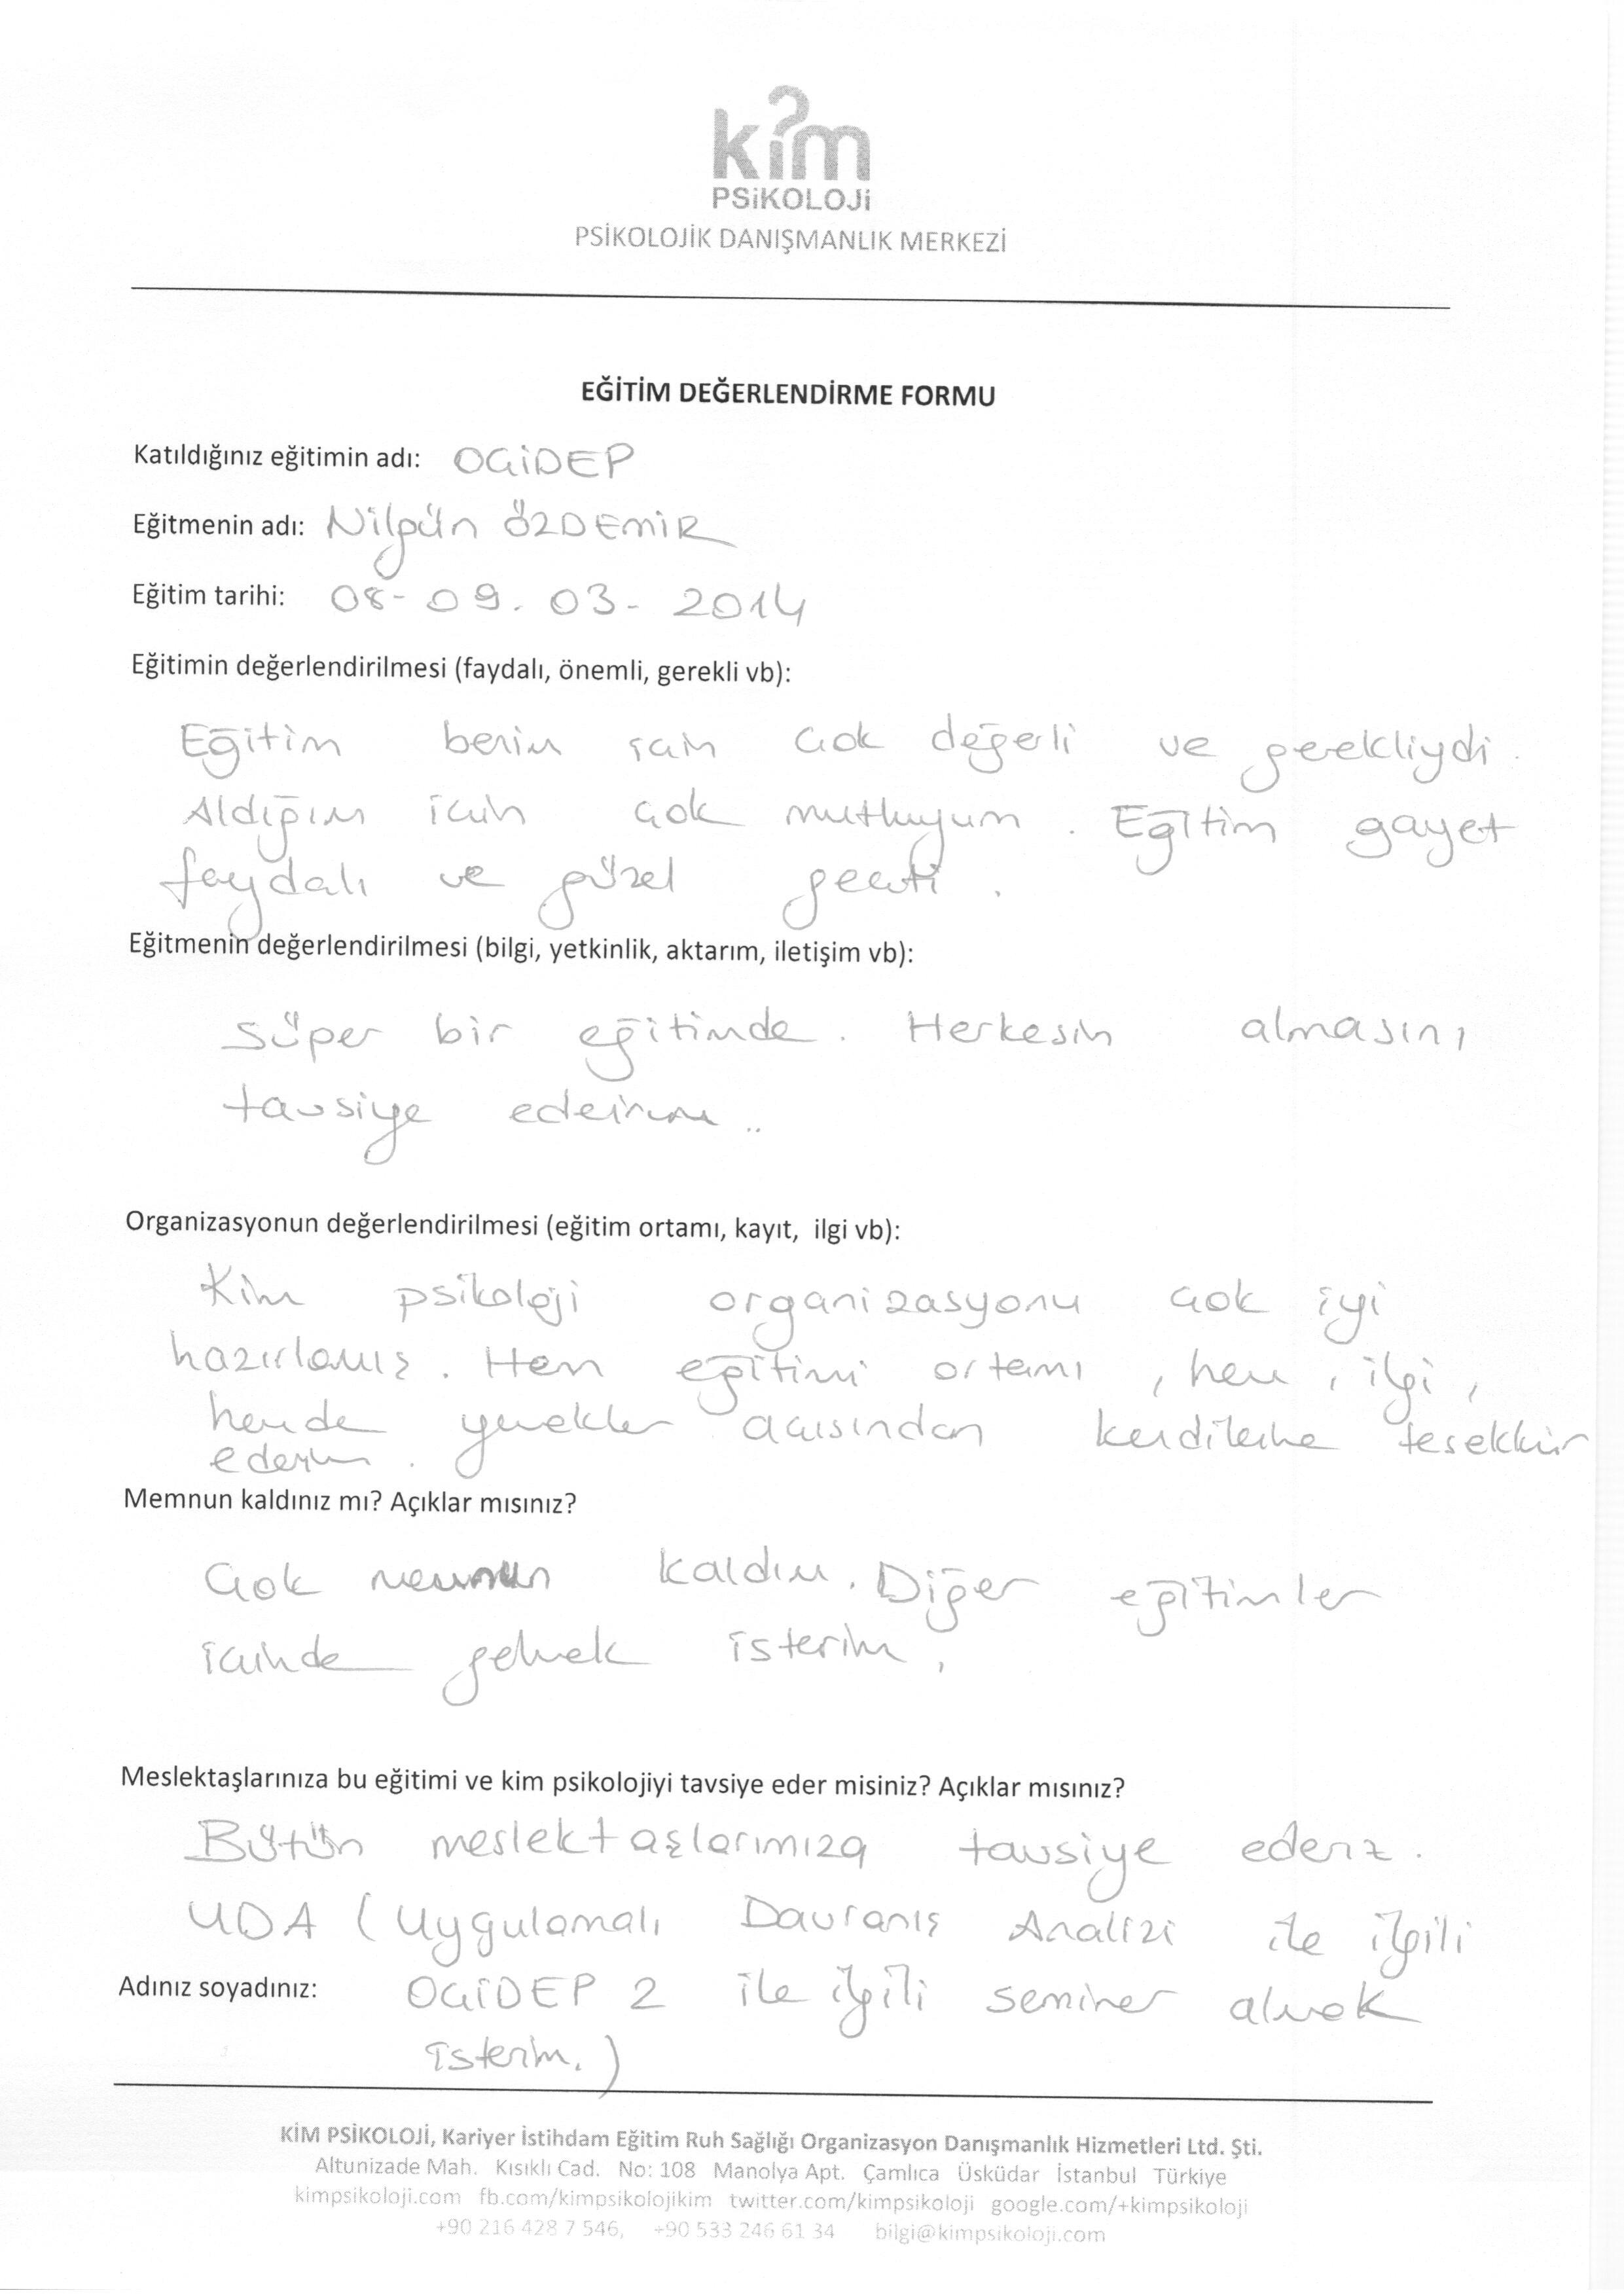 kim
PSiKOLOJi
PSİKOLOJİK DANIŞMANLIK MERKEZİ
EĞİTİM DEĞERLENDİRME FORMU
Katıldığınız eğitimin adı: OGİDEP
Eğitmenin adı: Nilgün ÖZDEMİR
Eğitim tarihi: 08-09.03-2014
Eğitimin değerlendirilmesi (faydalı, önemli, gerekli vb):
Eğitim benim için çok değerli ve gerekliydi.
Aldığım için çok mutluyum. Eğitim gayet
faydalı ve güzel geçti.
Eğitmenin değerlendirilmesi (bilgi, yetkinlik, aktarım, iletişim vb):
Süper bir eğitimde. Herkesin almasını
tavsiye ederim..
Organizasyonun değerlendirilmesi (eğitim ortamı, kayıt, ilgi vb):
Kim psikoloji organizasyonu çok iyi
hazırlamış. Hem eğitimi ortamı, hem, ilgi,
hemde yemekler açısından kendilerine teşekkür
ederim.
Memnun kaldınız mı? Açıklar mısınız?
Çok memnun kaldım. Diğer eğitimler
içinde gelmek isterim,
Meslektaşlarınıza bu eğitimi ve kim psikolojiyi tavsiye eder misiniz? Açıklar mısınız?
Bütün meslektaşlarımıza tavsiye ederiz.
UDA (Uygulamalı Davranış Analizi ile ilgili
Adınız soyadınız: OGİDEP 2 ile ilgili seminer almak
isterim.)
KİM PSİKOLOJİ, Kariyer İstihdam Eğitim Ruh Sağlığı Organizasyon Danışmanlık Hizmetleri Ltd. Şti.
Altunizade Mah. Kısıklı Cad. No: 108 Manolya Apt. Çamlıca Üsküdar İstanbul Türkiye
kimpsikoloji.com fb.com/kimpsikolojikim twitter.com/kimpsikoloji google.com/+kimpsikoloji
+90 216 428 7 546, +90 533 246 61 34 bilgi@kimpsikoloji.com